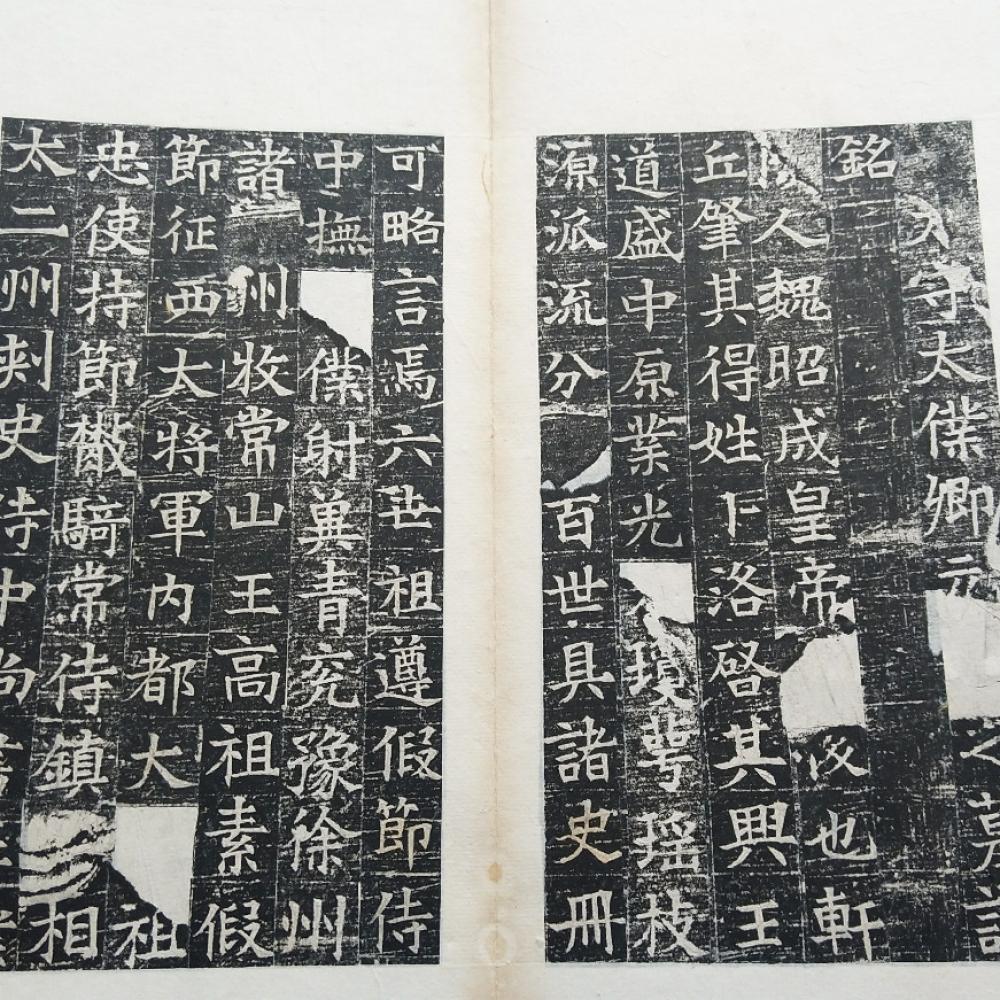 守太僕卿元之墓誌
銘
人魏昭成皇帝後也軒
丘肇其得姓卞洛啓其興王
道盛中原業光瓊萼瑶枝
源派流分百世具諸史冊
可略言焉六世祖遵假節侍
中撫僕射冀青兖豫徐州
諸州牧常山王高祖素假
節征西大將軍內都大祖
忠使持節散騎常侍鎮相
太二州刺史侍中尚書